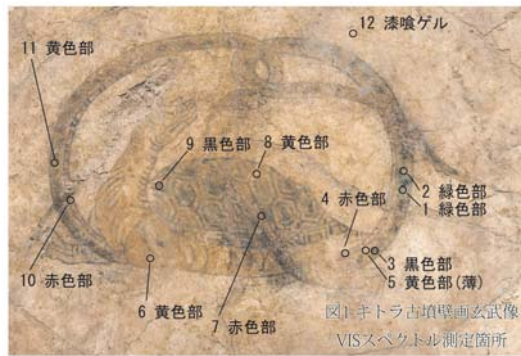 12 漆喰ゲル
11 黄色部
9 黒色部
8 黄色部
2 緑色部
1 緑色部
4 赤色部
3 黒色部
5 黄色部(薄)
10 赤色部
6 黄色部
7 赤色部
図1 キトラ古墳壁画玄武像
VISスペクトル測定箇所